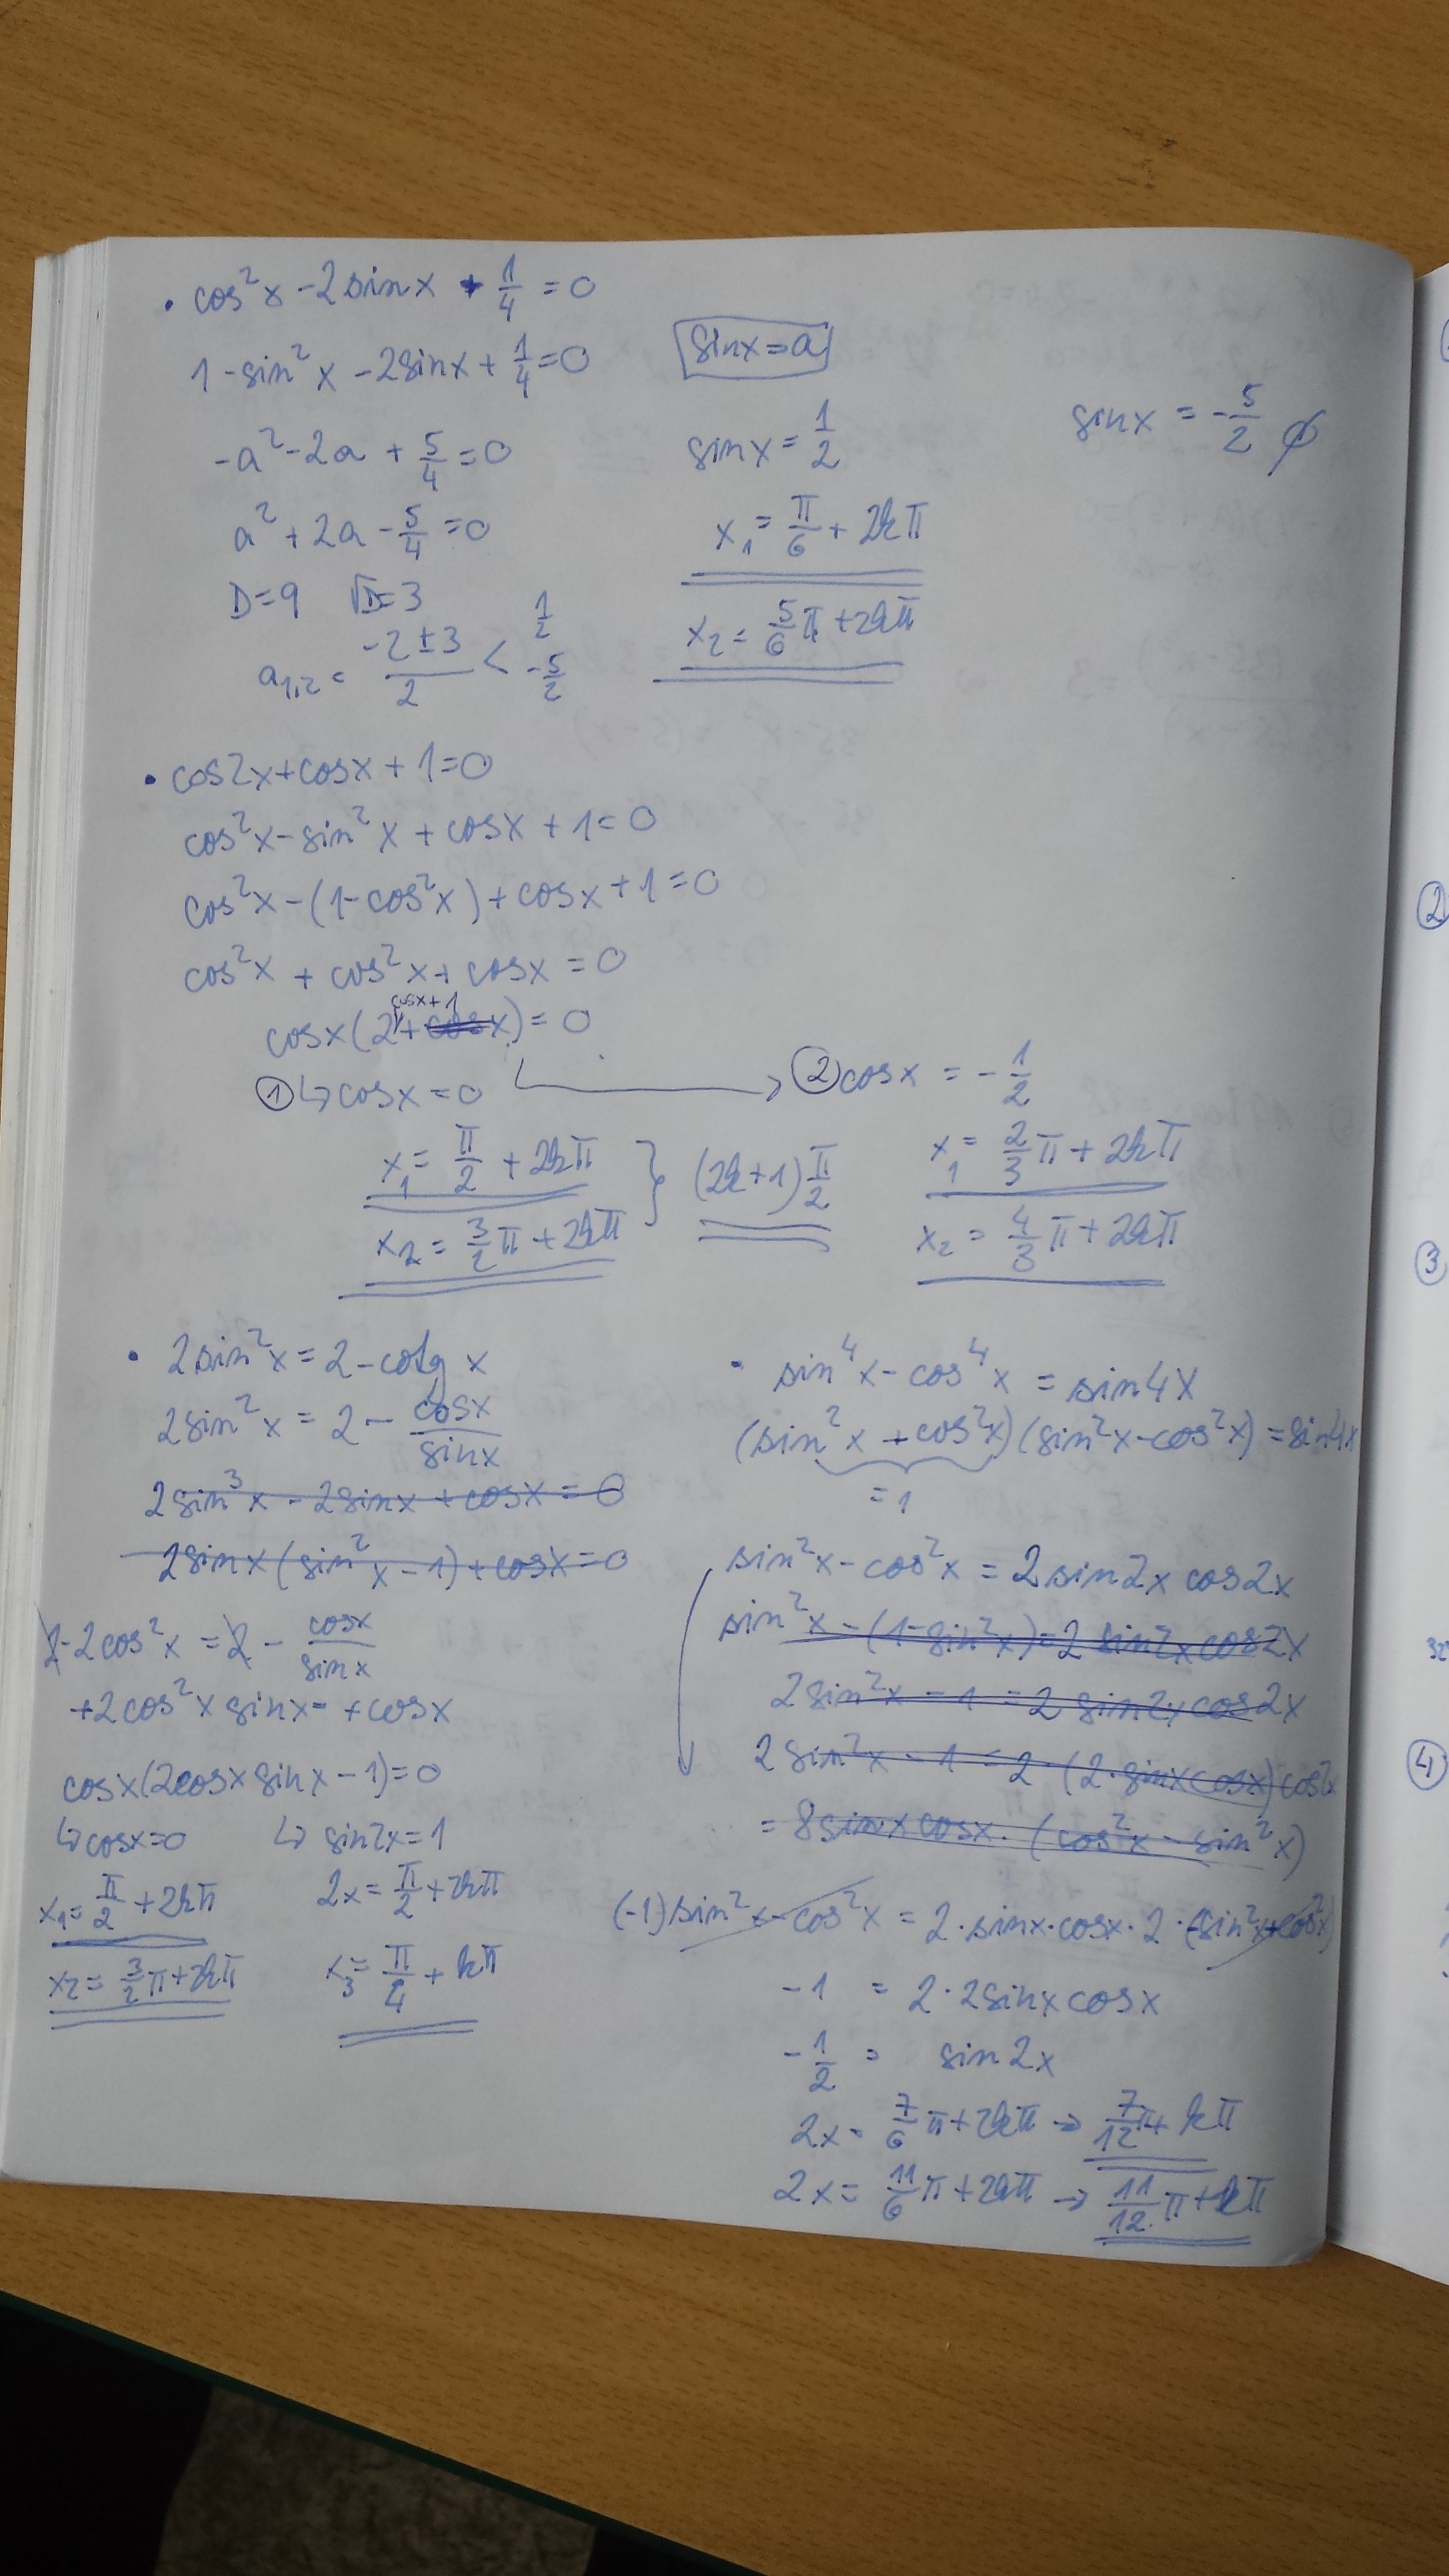 • cos²x - 2sinx + 1/4 = 0
1 - sin²x - 2sinx + 1/4 = 0
-a² - 2a + 5/4 = 0
a² + 2a - 5/4 = 0
D = 9 √D = 3
a₁,₂ = (-2 ± 3)/2 < 1/2
-5/2
sinx = a
sinx = 1/2
x₁ = π/6 + 2kπ
x₂ = 5/6 π + 2kπ
sinx = -5/2 ∅
• cos2x + cosx + 1 = 0
cos²x - sin²x + cosx + 1 = 0
cos²x - (1 - cos²x) + cosx + 1 = 0
cos²x + cos²x + cosx = 0
cosx+1
cosx(2 + cosx) = 0
① ↳ cosx = 0
x₁ = π/2 + 2kπ
x₂ = 3/2 π + 2kπ
} (2k+1) π/2
② cosx = -1/2
x₁ = 2/3 π + 2kπ
x₂ = 4/3 π + 2kπ
• 2sin²x = 2 - cotg x
2sin²x = 2 - cosx/sinx
2sin³x - 2sinx + cosx = 0
2sinx(sin²x - 1) + cosx = 0
2 - 2cos²x = 2 - cosx/sinx
+2cos²x sinx = +cosx
cosx(2cosx sinx - 1) = 0
↳ cosx = 0 ↳ sin2x = 1
x₁ = π/2 + 2kπ
x₂ = 3/2 π + 2kπ
2x = π/2 + 2kπ
x₃ = π/4 + kπ
• sin⁴x - cos⁴x = sin4x
(sin²x + cos²x)(sin²x - cos²x) = sin4x
= 1
sin²x - cos²x = 2sin2x cos2x
sin²x - (1 - sin²x) = 2 sin2x cos2x
2sin²x - 1 = 2 sin2x cos2x
2sin²x - 1 = 2 · (2·sinxcosx) cos2x
= 8sinx cosx · (cos²x - sin²x)
(-1) sin²x - cos²x = 2·sinx·cosx·2·(sin²x + cos²x)
-1 = 2·2sinx cosx
-1/2 = sin2x
2x = 7/6 π + 2kπ → 7/12 π + kπ
2x = 11/6 π + 2kπ → 11/12 π + kπ
②
③
④